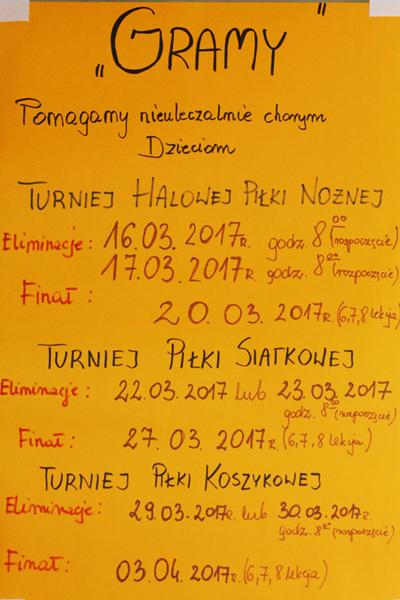 „GRAMY"
Pomagamy nieuleczalnie chorym
Dzieciom
TURNIEJ HALOWEJ PIŁKI NOŻNEJ
Eliminacje: 16.03.2017r. godz. 8⁰⁰ (rozpoczęcie)
17.03.2017r. godz. 8⁰⁰ (rozpoczęcie)
Finał:
20.03.2017r. (6,7,8 lekcja)
TURNIEJ PIŁKI SIATKOWEJ
Eliminacje: 22.03.2017 lub 23.03.2017
godz. 8⁰⁰ (rozpoczęcie)
Finał: 27.03.2017r. (6,7,8 lekcja)
TURNIEJ PIŁKI KOSZYKOWEJ
Eliminacje: 29.03.2017r. lub 30.03.2017r.
godz. 8⁰⁰ (rozpoczęcie)
Finał: 03.04.2017r. (6,7,8 lekcja)